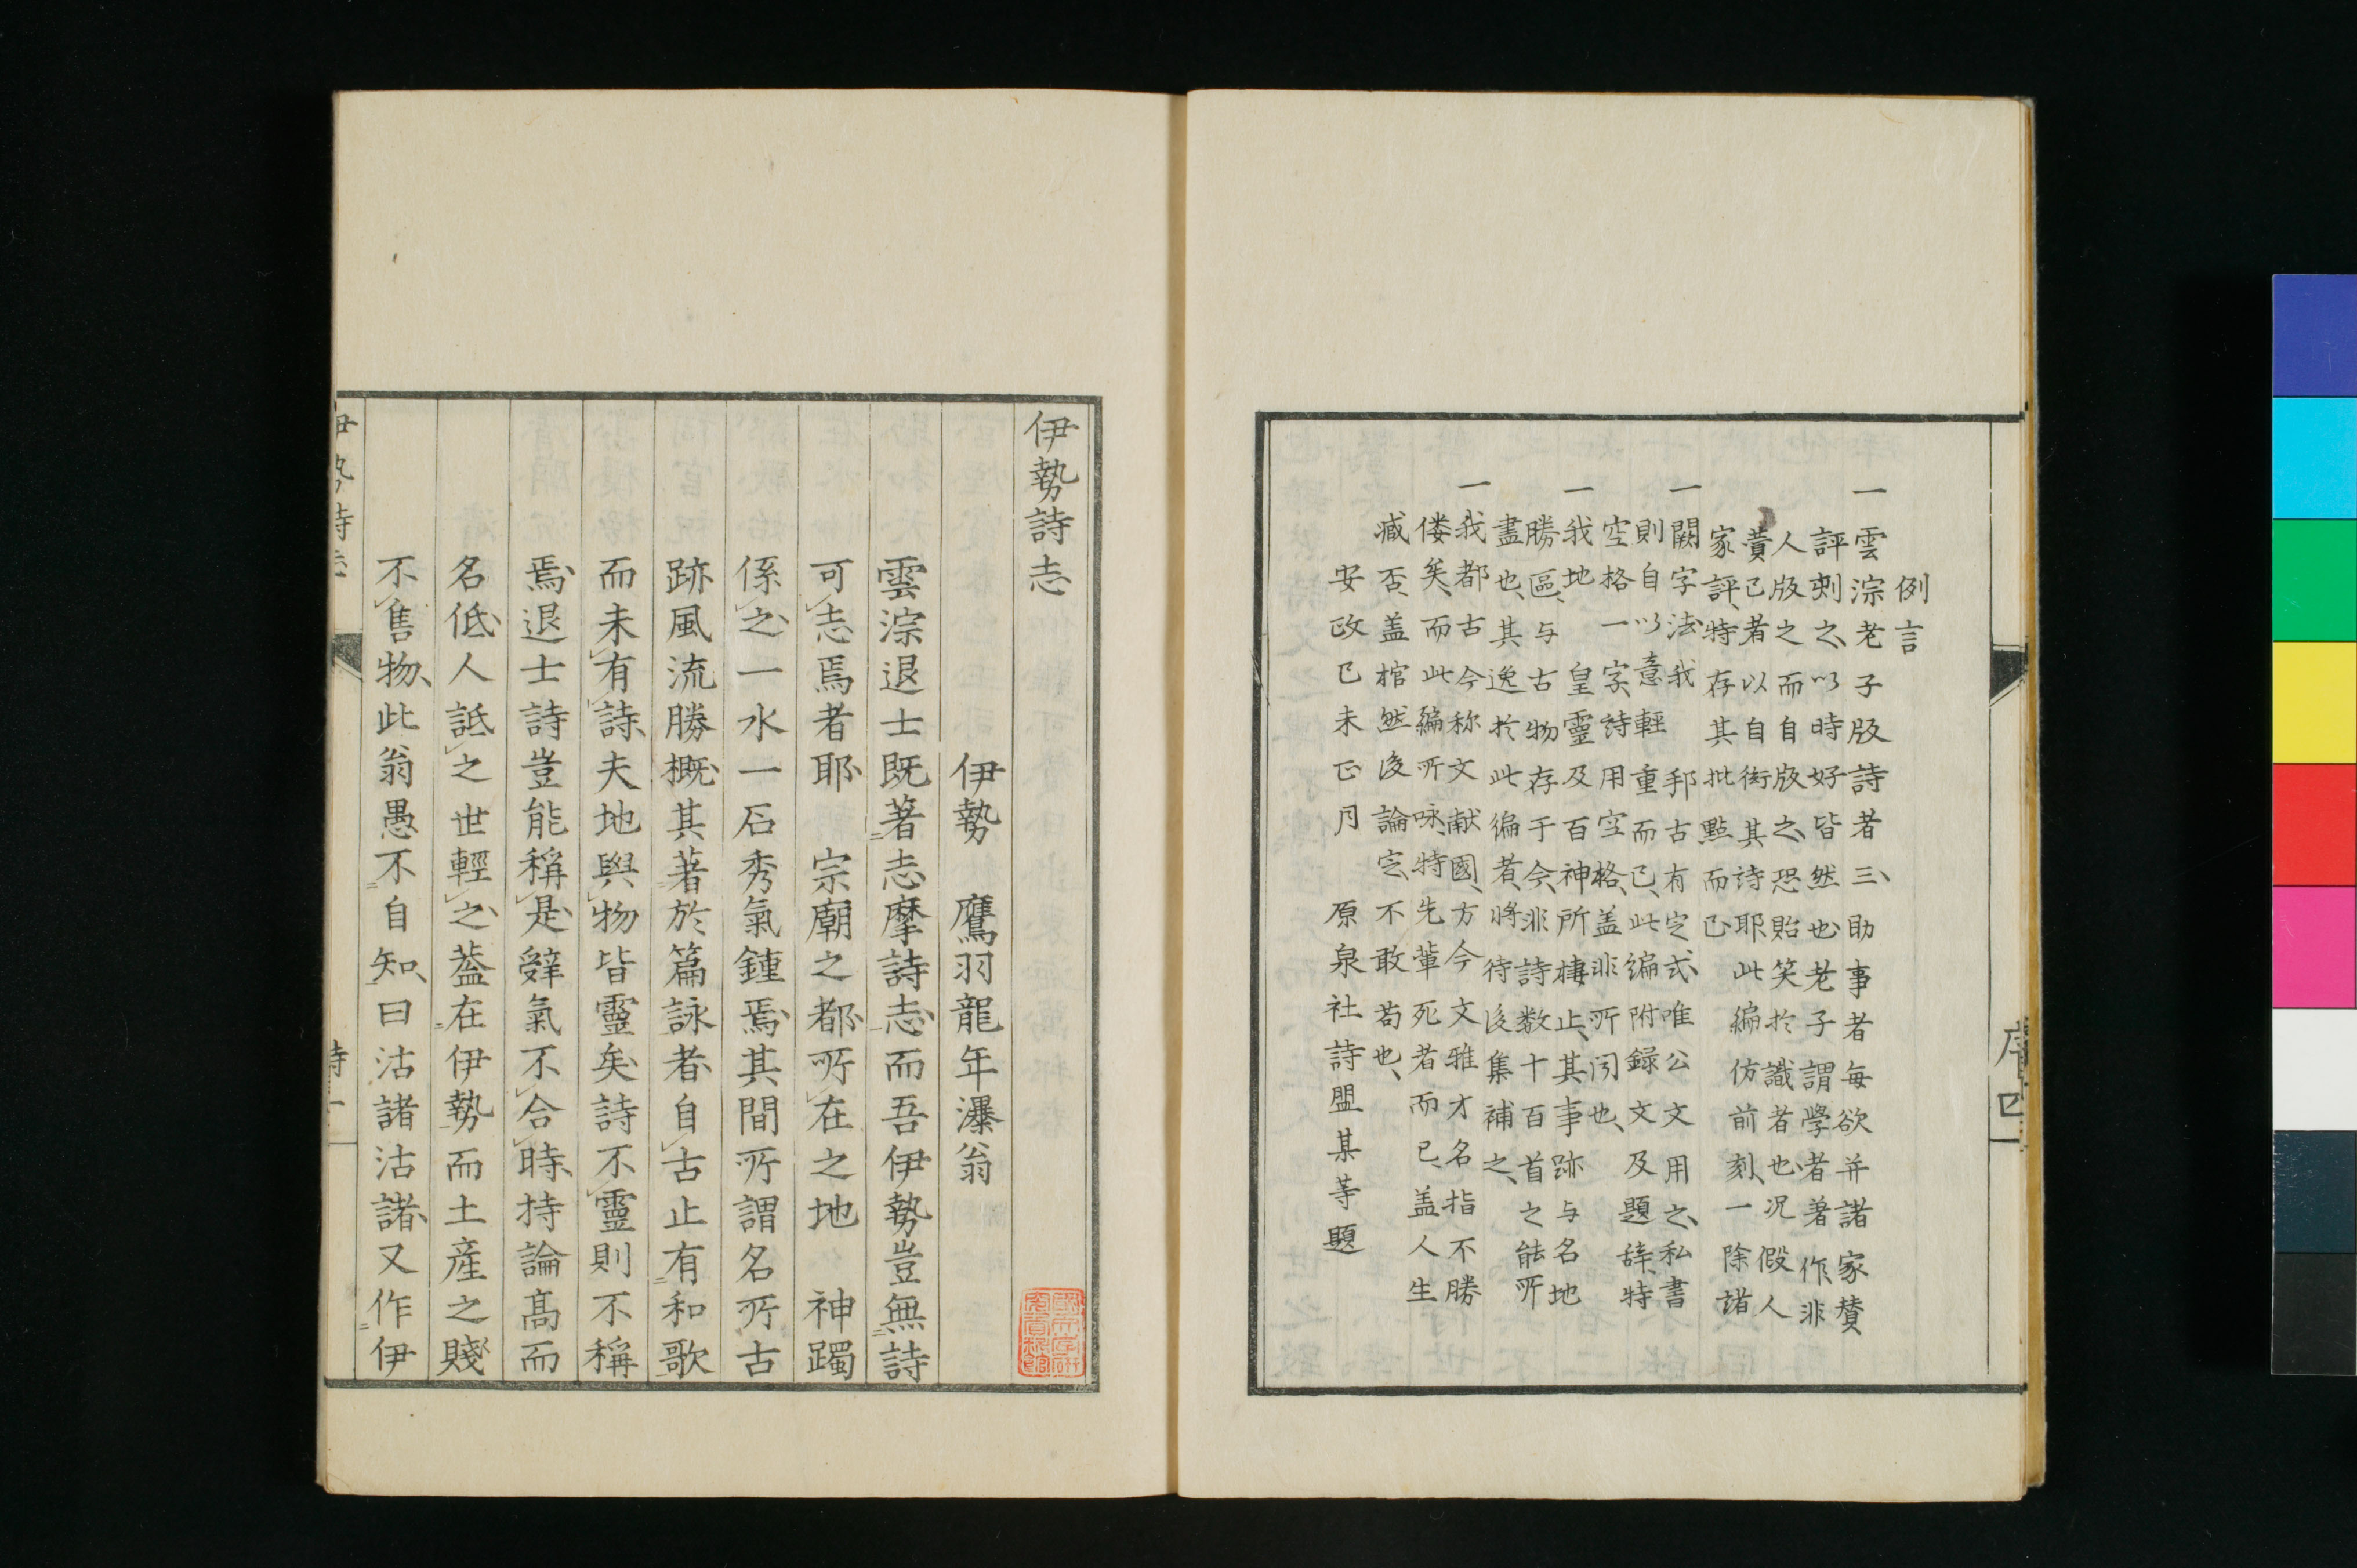 例言
一雲淙老子版詩者三、助事者每欲并諸家賛
評刺之、以時好皆然也、老子謂學者著作、非
人版之而自版之、恐貽笑於識者也、况假人
賣己者、以自衒其詩耶、此編仿前刻、一除諸
家評、特存其批點而已
一闕字法、我邦古有定式、唯公文用之、私書
則自以意輕重而已、此编附録文及題辞、特
空格一字、詩用空格、盖非所関也、
一我地皇靈及百神所棲止、其事跡与名地
勝區、与古物存于今、非詩数十百首之能所
盡也、其逸於此徧者、将待後集補之、
一我都古今称文献國、方今文雅才名指不勝
僂矣、而此編所咏、特先輩死者而已、盖人生
臧否、盖棺然後論定、不敢苟也、
安政己未正月　原泉社詩盟某等題
序四
伊勢詩志
伊勢　鷹羽龍年瀑翁
雲淙退士既著志摩詩志而吾伊勢豈無詩
可志焉者耶　宗廟之都所在之地　神躅
係之一水一石秀氣鍾焉其間所謂名所古
跡風流勝概其著於篇詠者自古止有和歌
而未有詩夫地與物皆靈矣詩不靈則不稱
焉退士詩豈能稱是辭氣不合時持論高而
名低人詆之世輕之葢在伊勢而土産之賤
不售物此翁愚不自知曰沽諸沽諸又作伊
伊勢詩志